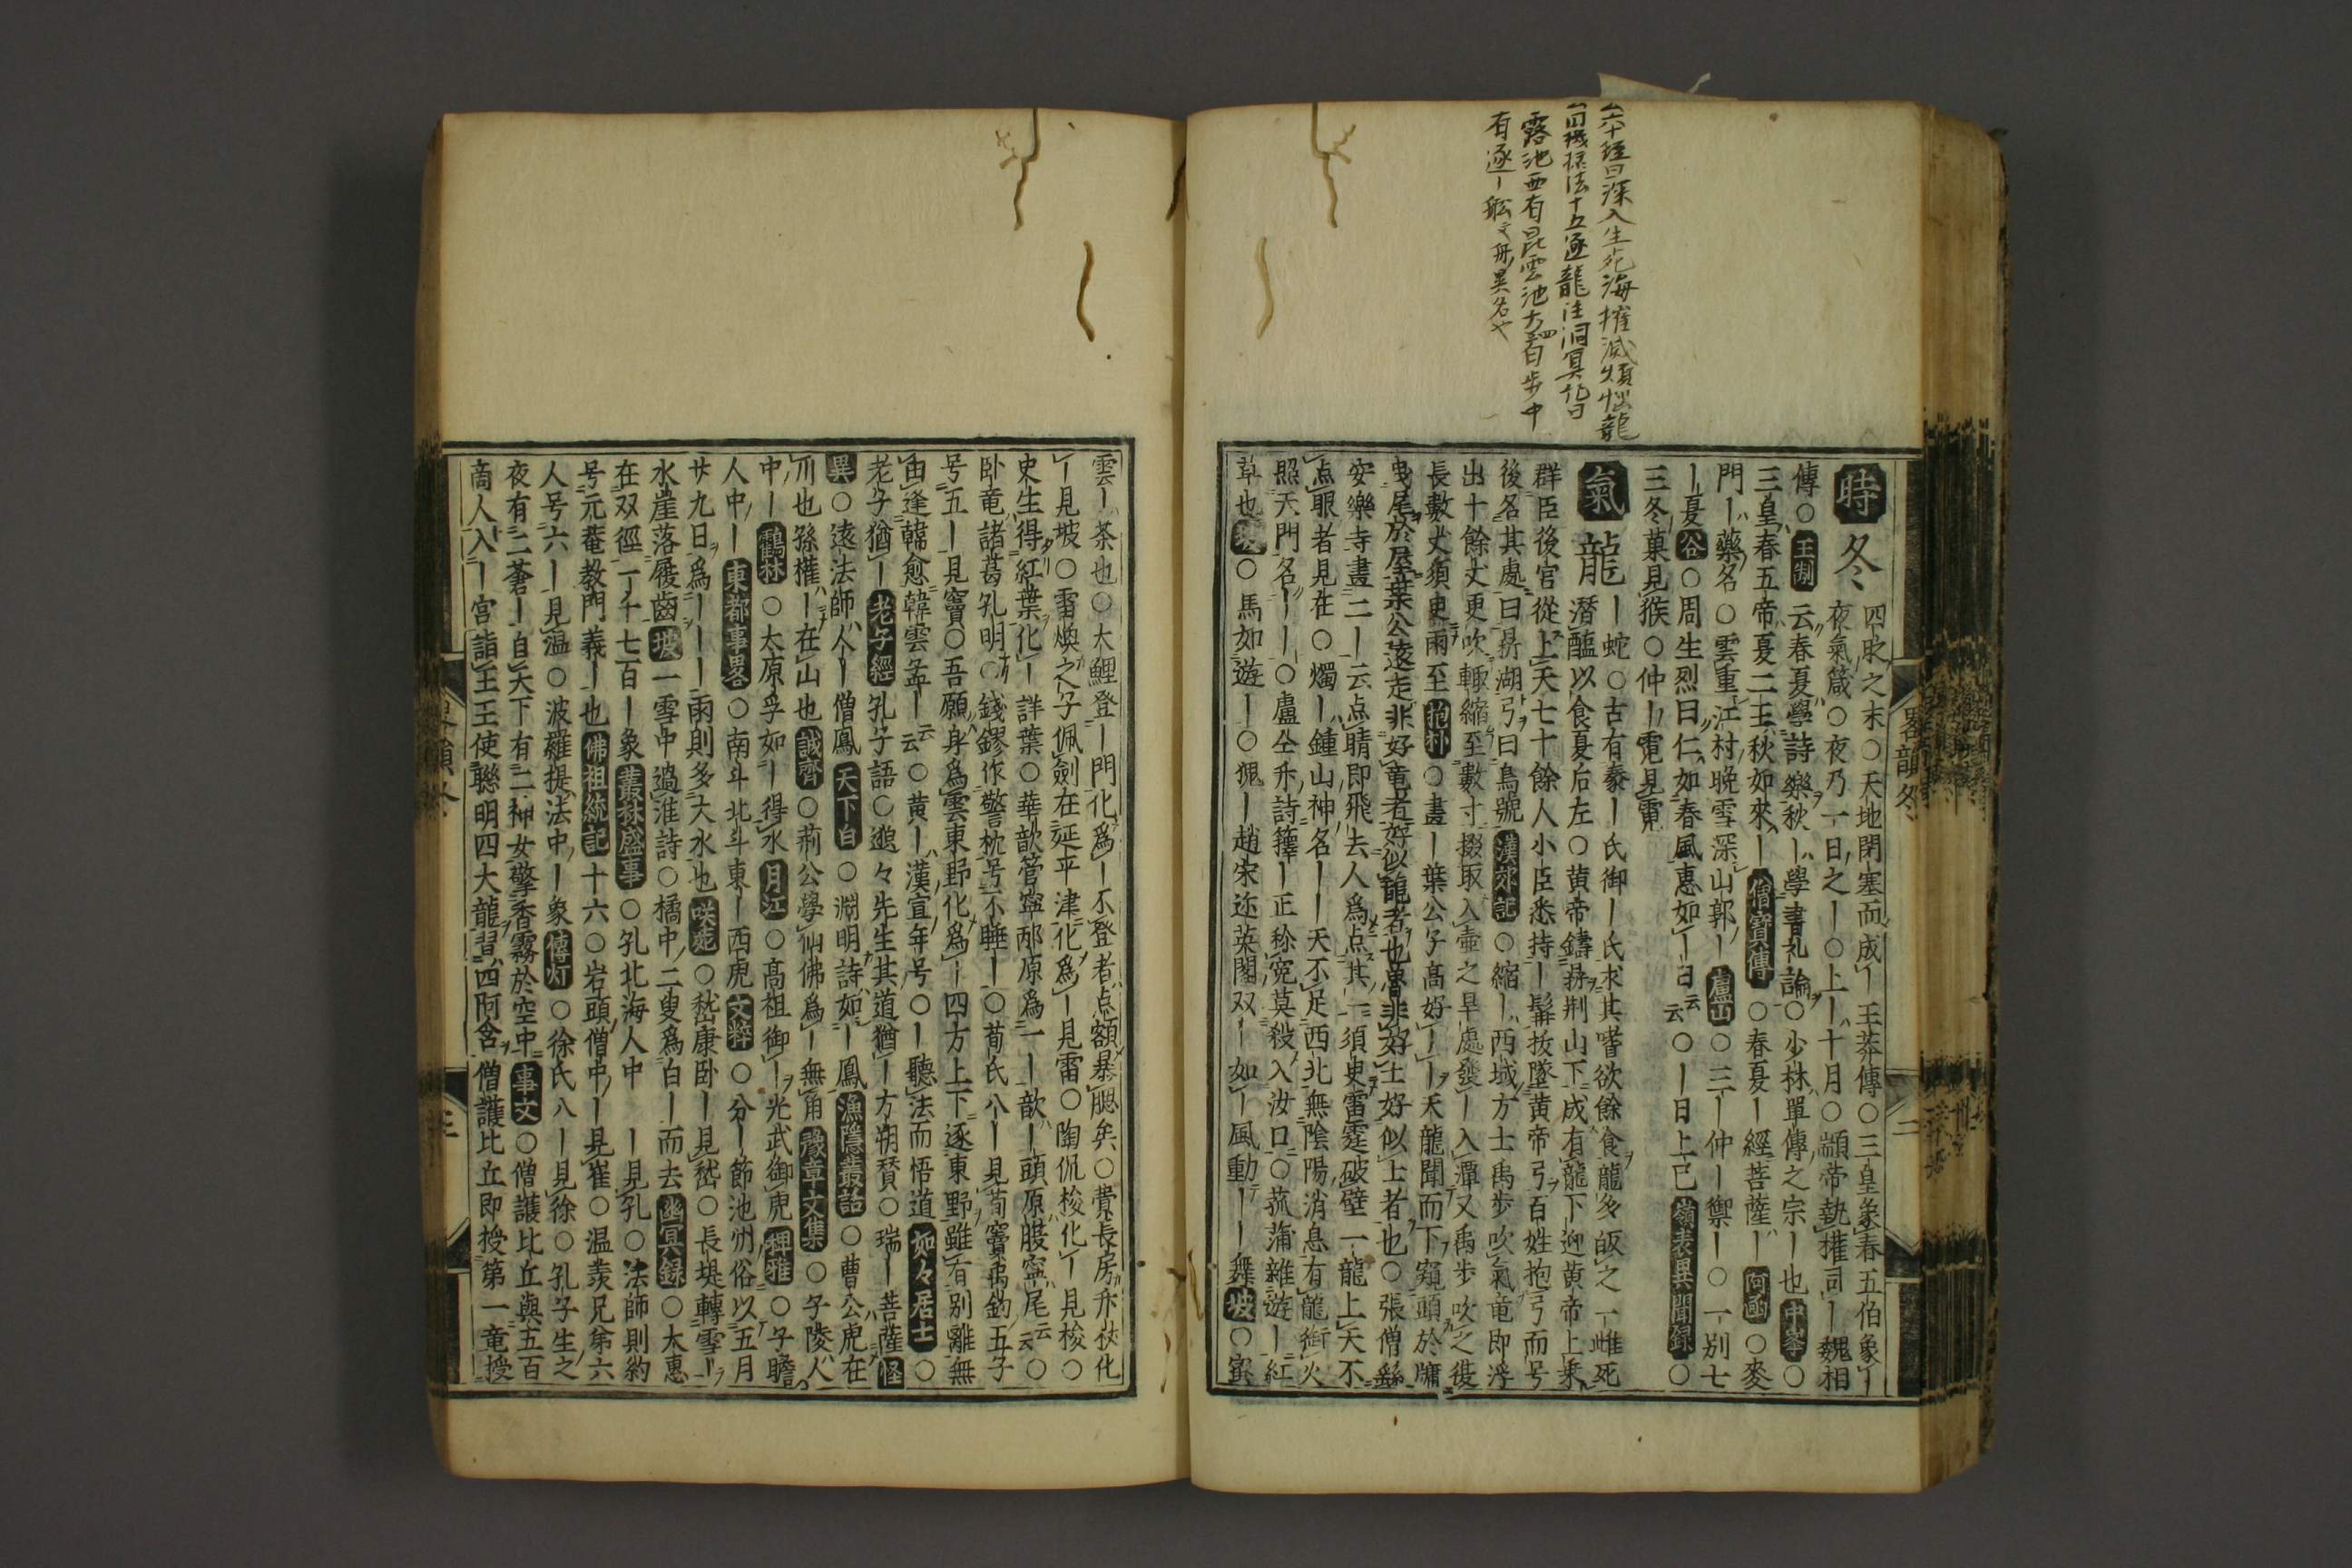 六十經曰深入生死海摧滅煩惱龍
露池西有昆雲池方四百步中
有逐ー舩舟異名也
時 冬 四时之末○天地閉塞而成ーー王莽傳○三皇象春五伯象ー
夜氣箴○夜乃一日之ー○上ー十月○顓帝執權司ー魏相
傳○王制 云春夏學詩樂秋ー學書礼論○少林單傳之宗ー也中峯○
三皇春五帝夏二王秋如來ー僧寶傳○春夏ー經菩薩ー阿凾○麥
門ー藥名○雲重江村晚雪深山郭ー廬山○三ー仲ー禦ー○一別七
ー夏谷○周生烈曰仁如春風惠如ー日云云○ー日上巳嶺表異聞録○
三冬菓見猴○仲ー電見電
氣 龍 ー蛇○古有豢ー氏御ー氏求其嗜欲餘食龍多皈之一雌死
潛醢以食夏后左○黄帝鑄鼎荆山下成有龍下迎黄帝上乘
群臣後宮從上天七十餘人小臣悉持ー髯拔墜黄帝弓百姓抱弓而号
後名其處曰鼎湖弓曰烏號漢郊記○縮ー西域方士禹步吹氣竜即浮
出十餘丈更吹輙縮至數寸掇取入壷之旱處發ー入潭又禹步吹之復
長數丈須臾雨至抱朴○畫ー葉公子高好ーー天龍聞而下窺頭於牗
曳尾於屋葉公遠走非好竜者好似龍者也魯非好士好似士者也○張僧繇
安樂寺畫二ー云点睛即飛去人爲点其一須臾雷霆破壁一龍上天不
点眼者見在○燭ー鍾山神名ーー天不足西北無陰陽消息有龍銜火
照天門名ーーー○盧仝詩籜ー正称寃莫殺入汝口○菰蒲雜遊ー紅
草也○馬如遊ー○猊ー趙宋迩英閣双ー如ー風動ーー舞坡○蜜
雲ー茶也○大鯉登ー門化爲ー不登者点額暴腮矣○費長房杖化
ー見坡○雷煥之子佩劍在延平津化爲ー見雷○陶侃梭化ー見梭○
史生得紅葉化ー詳葉○華歆管寧邴原爲一ー歆ー頭原腹寧尾云○
卧竜諸葛孔明○錢鏐作警枕号不睡ー○荀氏八ー見荀竇禹鈞五子
号五ー見竇○吾願身爲雲東野化爲ー四方上下逐東野雖有別離無
由逢韓愈韓雲孟ー云○黄ー漢宣年号○ー聽法而悟道如々居士○
老子猶ー老子經孔子語○逸々先生其道猶ー方朔賛○瑞ー菩薩怪
異○遠法師人ー僧鳳天下白○淵明詩如ー鳳漁隱叢話○曹公虎在
川也孫權ー在山也誠齊○荊公學仙佛爲ー無角豫章文集○子陵人
中ー鶴林○太原孚如ー得水月江○高祖御ー光武御虎稗雅○子瞻
人中ー東都事畧○南斗北斗東ー西虎文粹○分ー節池州俗以五月
廿九日爲ーーー雨則多大水也咲苑○嵆康卧ー見嵆○長堤轉雪ー
水崖落屐齒坡一雪中過淮詩○橘中二叟爲白ー而去幽冥録○大惠
在双徑一千七百ー象叢林盛事○孔北海人中ー見孔○法師則約
号元菴教門義ー也佛祖統記十六○岩頭僧中ー見崔○温羨兄弟六
人号六ー見温○波羅提法中ー象傳灯○徐氏八ー見徐○孔子生之
夜有二蒼ー自天下有二神女擎香霧於空中事文○僧護比丘與五百
商人入ー宮詣王王使聰明四大龍習四阿含僧護比丘即授第一竜授
畧韻冬
二